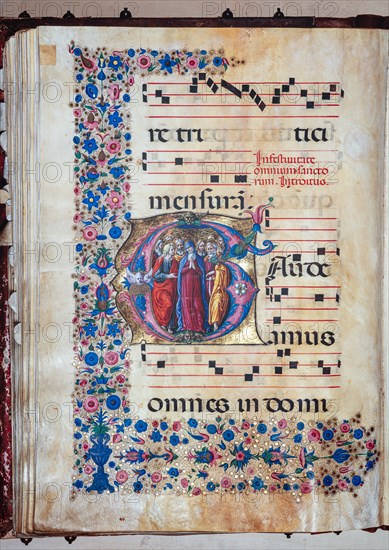 re tri tici
In festivitate
omnium sancto
rum. Introitus.
mensura
Aude
amus
omnes in domi